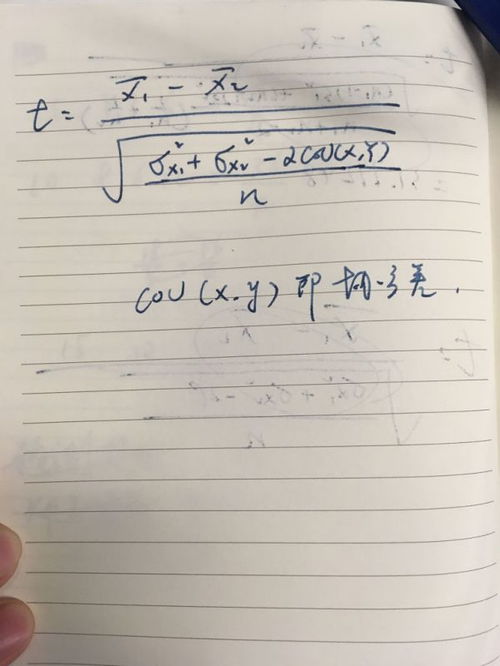 t = x̄₁ - x̄₂
√ σx₁² + σx₂² - 2cov(x,y)
n
cov (x.y) 即 协方差.